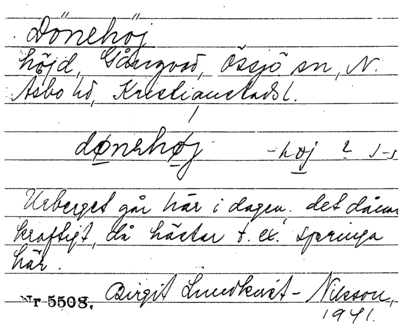 Dönehöj
höjd, Gångvad, Össjö sn, N.
Åsbo hd, Kristianstads l.
dønehøj -høj 2 s-s
Urberget går här i dagen, det dånar
kraftigt, då hästar t. ex. springa
här.
Nr 5508. Birgit Lundkvist-Nilsson,
1941.